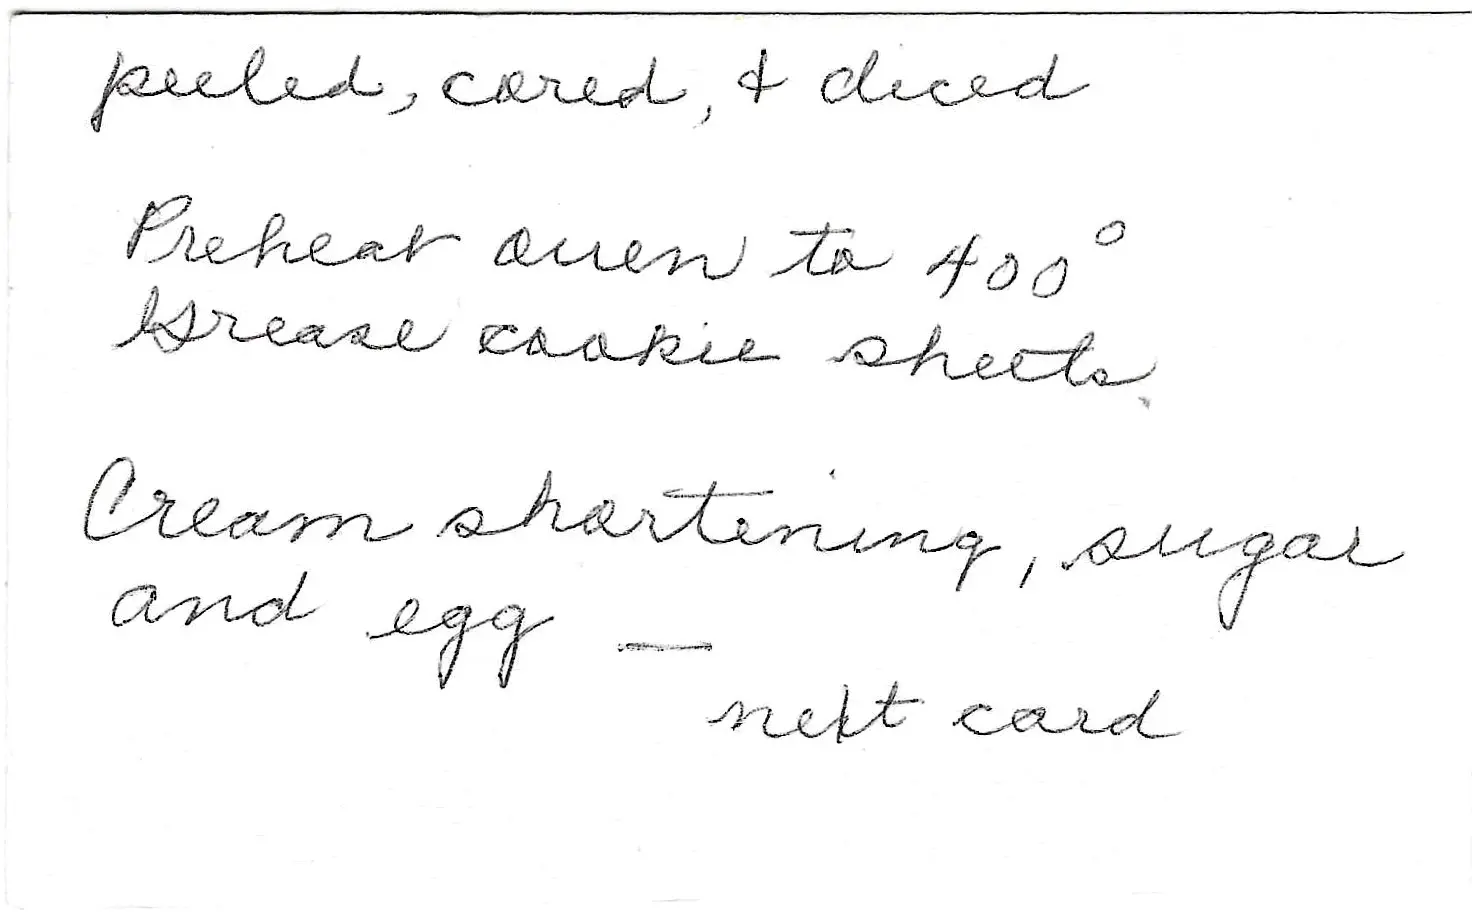 peeled, cored, & diced
Preheat oven to 400°
Grease cookie sheets.
Cream shortening, sugar
and egg —
next card